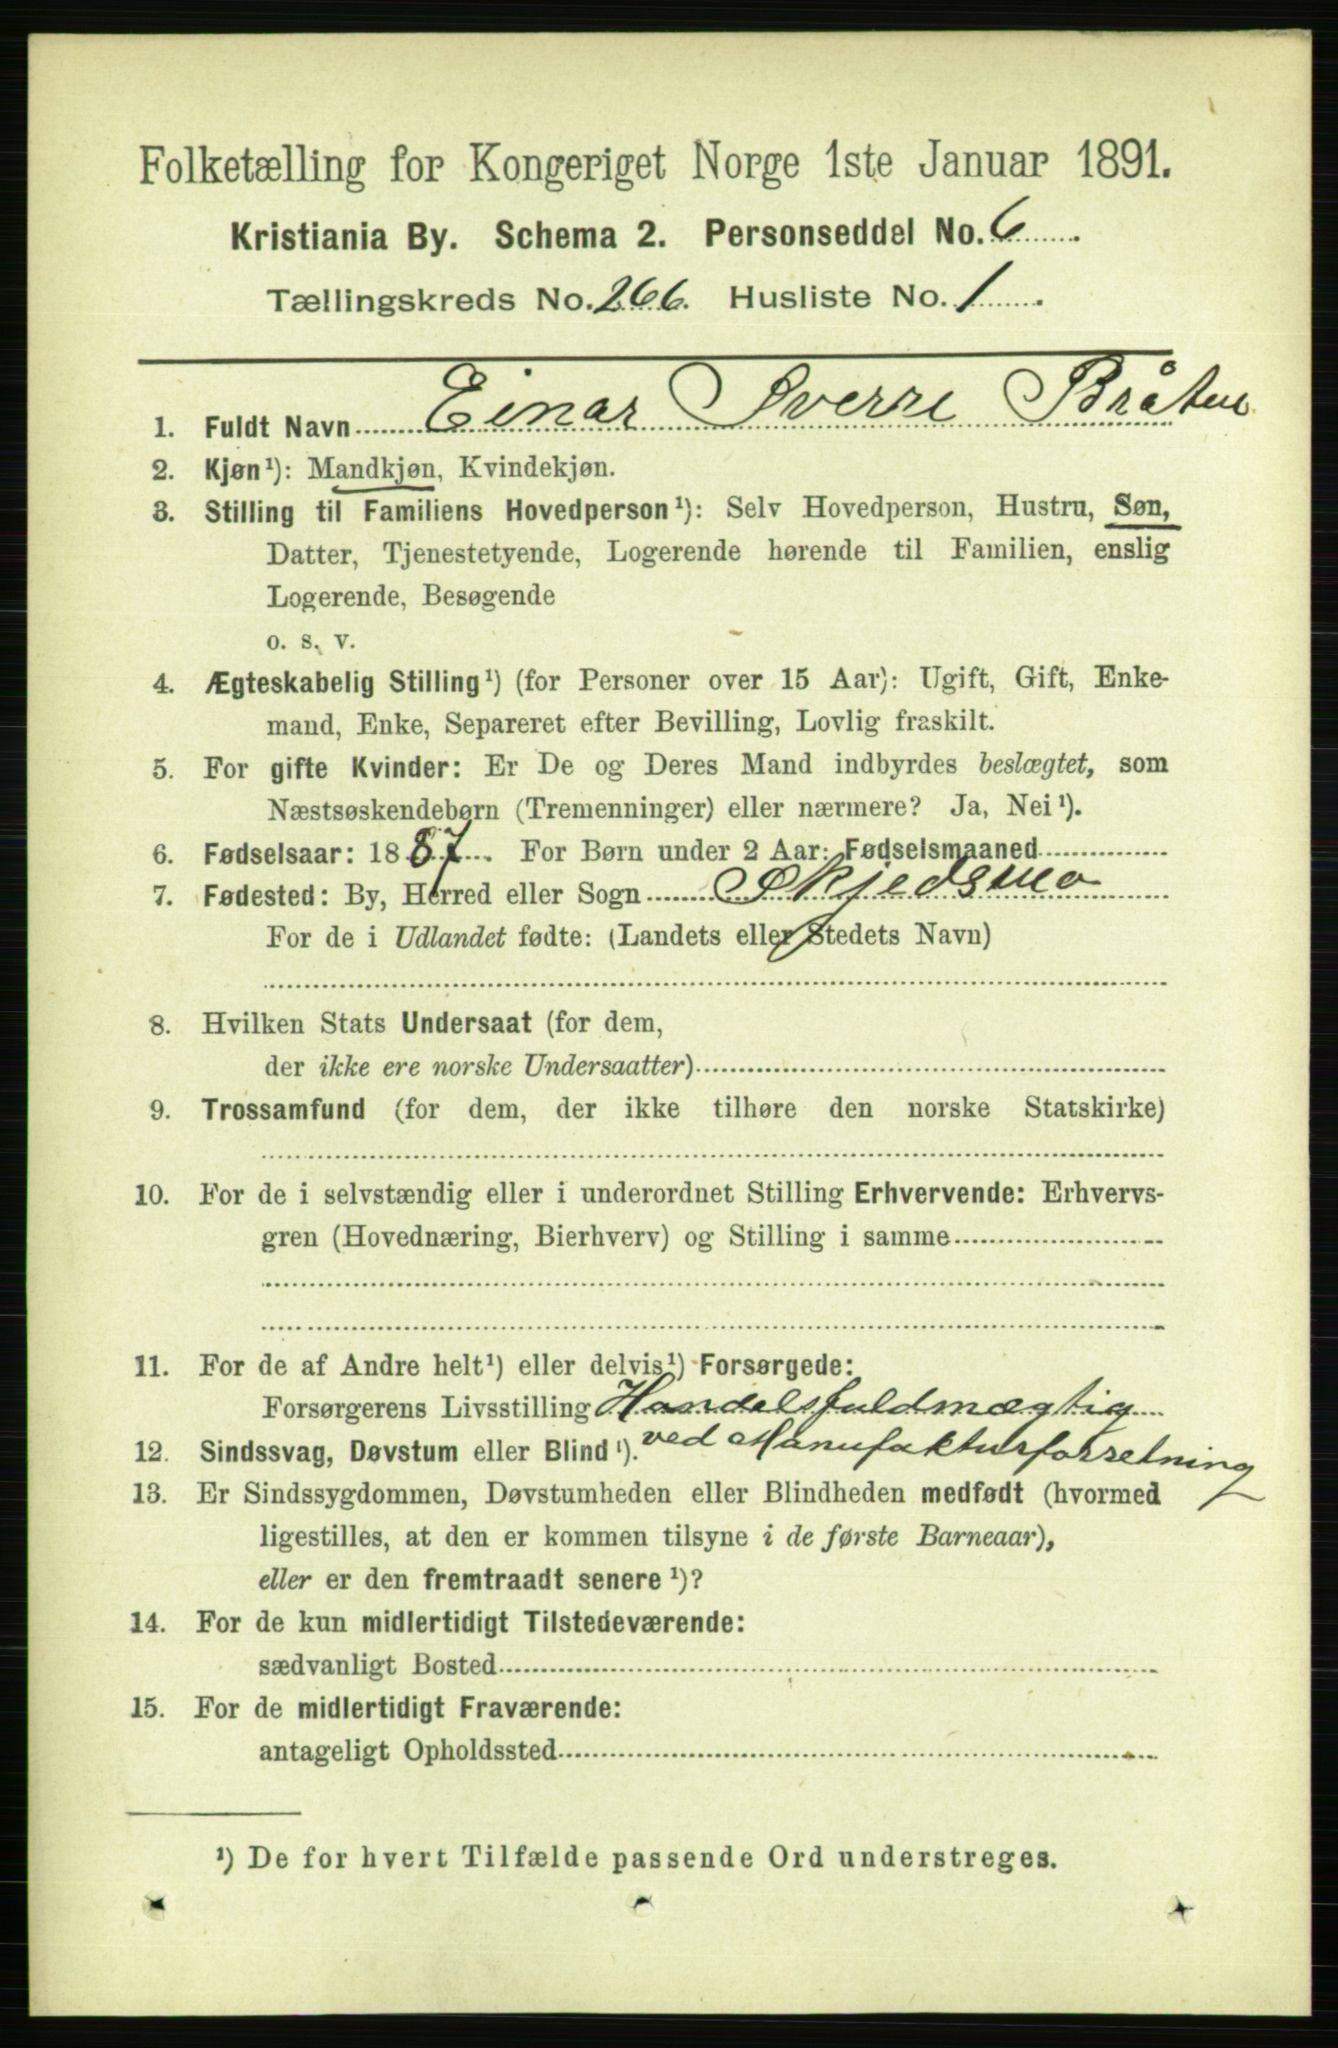 Folketælling for Kongeriget Norge 1ste Januar 1891.
Kristiania By. Schema 2. Personseddel No. 6
Tællingskreds No. 266. Husliste No. 1
1. Fuldt Navn Einar Sverre Bråten
2. Kjøn¹): Mandkjøn, Kvindekjøn.
3. Stilling til Familiens Hovedperson¹): Selv Hovedperson, Hustru, Søn,
Datter, Tjenestetyende, Logerende hørende til Familien, enslig
Logerende, Besøgende
o. s. v.
4. Ægteskabelig Stilling¹) (for Personer over 15 Aar): Ugift, Gift, Enke-
mand, Enke, Separeret efter Bevilling, Lovlig fraskilt.
5. For gifte Kvinder: Er De og Deres Mand indbyrdes beslægtet, som
Næstsøskendebørn (Tremenninger) eller nærmere? Ja, Nei¹).
6. Fødselsaar: 1887. For Børn under 2 Aar: Fødselsmaaned
7. Fødested: By, Herred eller Sogn Skjedsmo
For de i Udlandet fødte: (Landets eller Stedets Navn)
8. Hvilken Stats Undersaat (for dem,
der ikke ere norske Undersaatter)
9. Trossamfund (for dem, der ikke tilhøre den norske Statskirke)
10. For de i selvstændig eller i underordnet Stilling Erhvervende: Erhvervs-
gren (Hovednæring, Bierhverv) og Stilling i samme
11. For de af Andre helt¹) eller delvis¹) Forsørgede:
Forsørgerens Livsstilling Handelsfuldmægtig
ved Manufakturforretning
12. Sindssvag, Døvstum eller Blind¹).
13. Er Sindssygdommen, Døvstumheden eller Blindheden medfødt (hvormed
ligestilles, at den er kommen tilsyne i de første Barneaar),
eller er den fremtraadt senere¹)?
14. For de kun midlertidigt Tilstedeværende:
sædvanligt Bosted
15. For de midlertidigt Fraværende:
antageligt Opholdssted
¹) De for hvert Tilfælde passende Ord understreges.